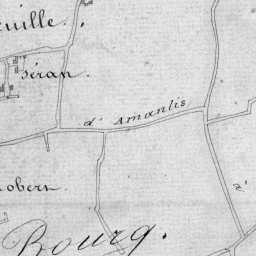 euille.
séran.
d'Amanlis
obert
Bourg.